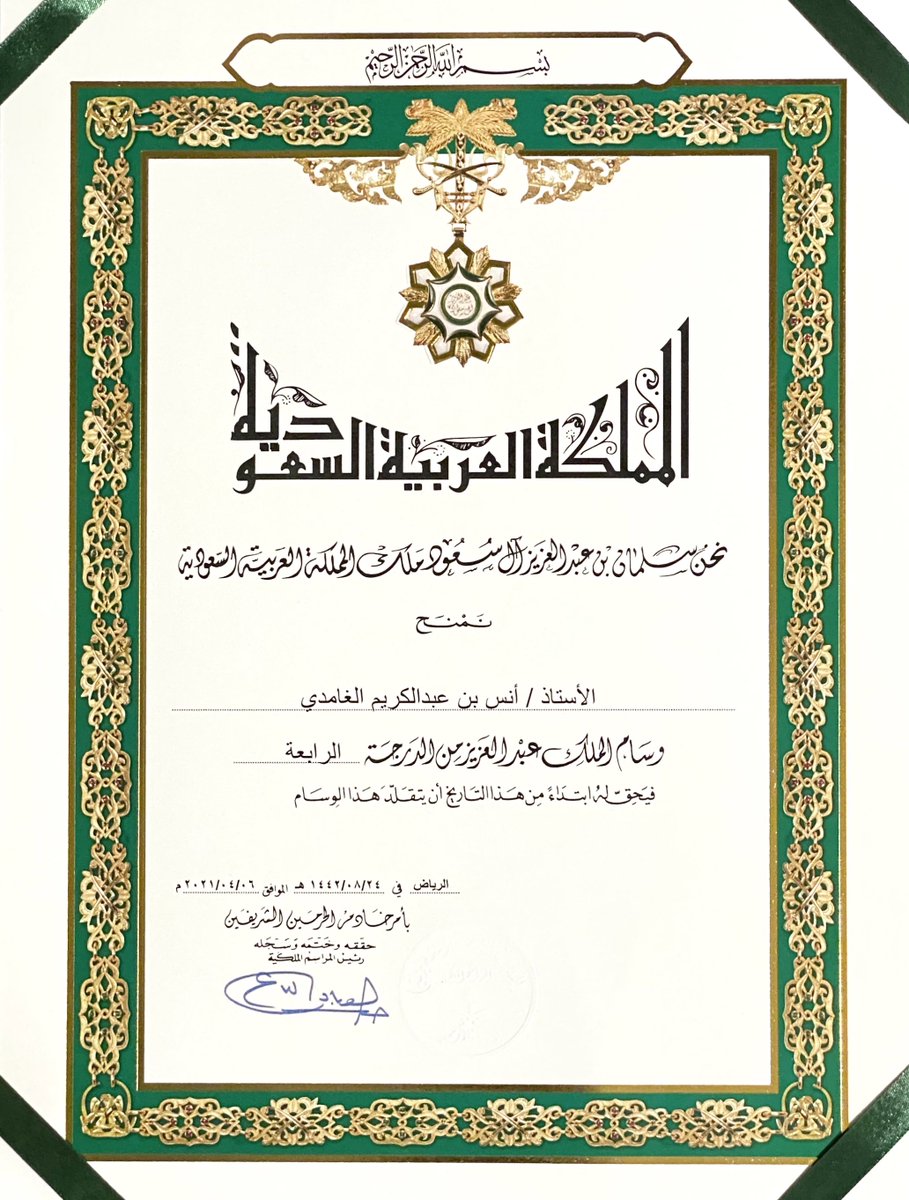 بسم الله الرحمن الرحيم
المملكة العربية السعودية
نحن سلمان بن عبد العزيز آل سعود ملك المملكة العربية السعودية
نمنح
الأستاذ / أنس بن عبدالكريم الغامدي
وسام الملك عبد العزيز من الدرجة الرابعة
فيحق له ابتداءً من هذا التاريخ أن يتقلد هذا الوسام
الرياض في ١٤٤٢/٠٨/٢٤ هـ الموافق ٢٠٢١/٠٤/٠٦ م
بأمر خادم الحرمين الشريفين
حققه وختمه وسجله
رئيس المراسم الملكية